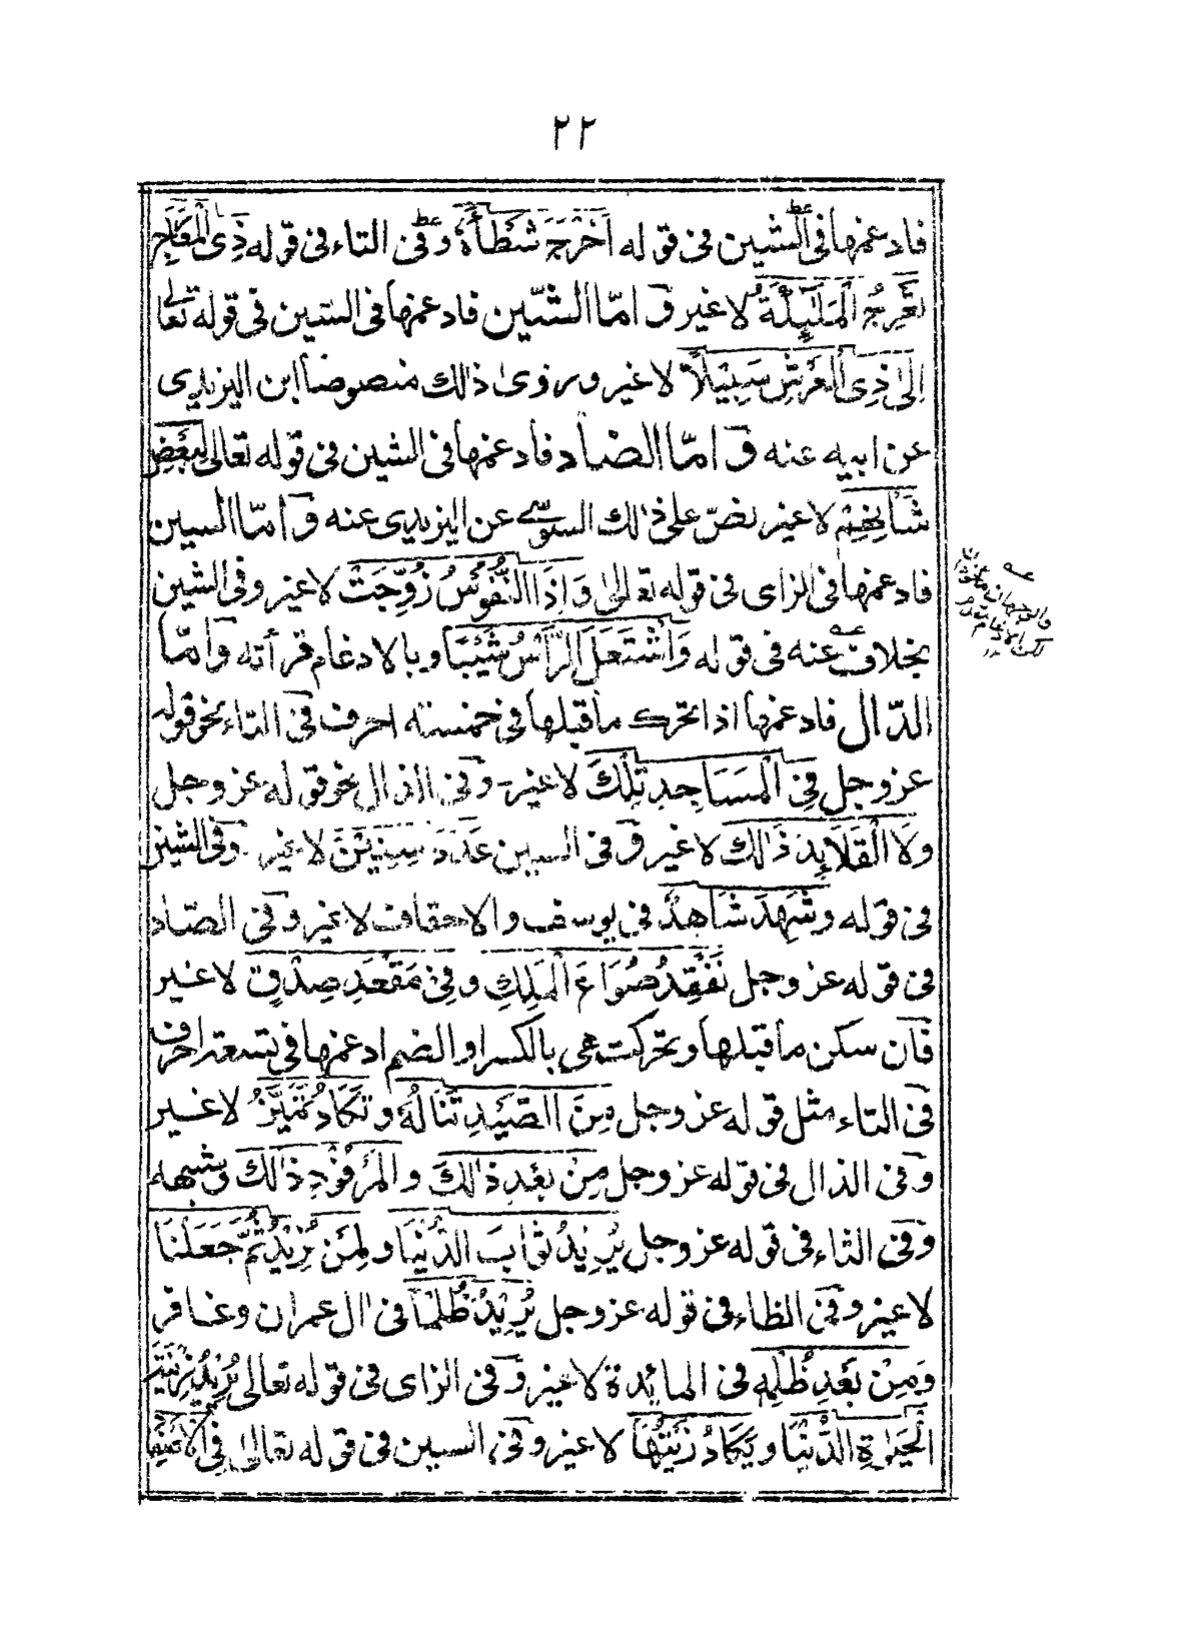 ٢٢
فادغمها فى الشين فى قوله اَخْرَجَ شَطْأَهُ وفى التاء فى قوله ذِى الْمَعَارِجِ
تَعْرُجُ الْمَلٰٓئِكَةُ لا غير و امّا الشّين فادغمها فى السّين فى قوله تعالى
اِلىٰ ذِى الْعَرْشِ سَبِيْلاً لا غير وروىٰ ذالك منصوصاً ابن اليزيدى
عن ابيه عنه و امّا الضاد فادغمها فى الشين فى قوله تعالى لِبَعْضِ
شَأْنِهِمْ لا غير نصّ على ذٰلك السوسى عن اليزيدى عنه و امّا السين
فادغمها فى الزاى فى قوله تعالىٰ وَاِذَا النُّفُوْسُ زُوِّجَتْ لا غير وفى الشين
بخلاف عنه فى قوله وَاشْتَعَلَ الرَّأْسُ شَيْبًا وبالادغام قرأته وامّا
الدّال فادغمها اذا تحرك ما قبلها فى خمسته احرف فى التاء نحو قوله
عزوجل فِى الْمَسَاجِدِ تِلْكَ لا غير وفى الذال نحو قوله عزوجل
وَلَا الْقَلَآئِدَ ذَالِكَ لا غير و فى السين عَدَدَ سِنِيْنَ لا غير وفى الشين
فى قوله وَشَهِدَ شَاهِدٌ فى يوسف والاحقاف لا غير وفى الصّاد
فى قوله عزوجل نَفْقِدُ صُوَاعَ الْمَلِكِ وفِىْ مَقْعَدِ صِدْقٍ لا غير
فان سكن ما قبلها وتحركت هى بالكسر او الضم ادغمها فى تسعته احرف
فى التاء مثل قوله عزوجل مِنَ الصَّيْدِ تَنَالُهُ وتَكَادُ تَمَيَّزُ لا غير
وفى الذال فى قوله عزوجل مِنْ بَعْدِ ذٰلِكَ والْمَرْفُوْدِ ذٰلِكَ وشبهه
وفى الثاء فى قوله عزوجل يُرِيْدُ ثَوَابَ الدُّنْيَا ولِمَن نُرِيْدُ ثُمَّ جَعَلْنَا
لا غير وفى الظاء فى قوله عزوجل يُرِيْدُ ظُلْمًا فى اٰل عمران وغافر
وَمِنْ بَعْدِ ظُلْمِهٖ فى المائدة لا غير وفى الزاى فى قوله تعالى تُرِيْدُ زِيْنَةَ
الْحَيٰوةِ الدُّنْيَا ويَكَادُ زَيْتُهَا لا غير وفى السين فى قوله تعالىٰ فِى الْاَصْفَا